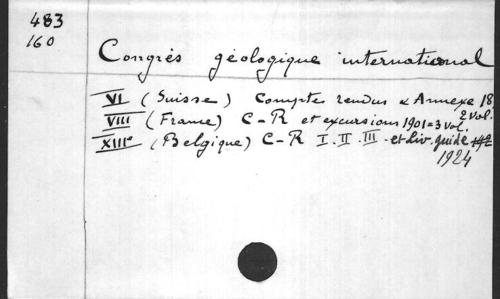 483
160
Congrès géologique international
VI (Suisse) Comptes rendus & Annexe 18
2 vol.
VIII (France) C-R et excursions 1901=3 vol.
XIIIe (Belgique) C-R I. II. III - et Liv. guide
1924